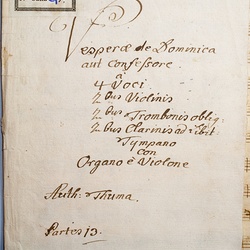 Vesperæ de Dominica
aut Confessore.
à
4 Voci
2 bus Violinis
2 bus Trombonis oblig.
2 bus Clarinis ad libit.
Tympano
con
Organo è Violone
Auth: Thuma.
Partes 13.